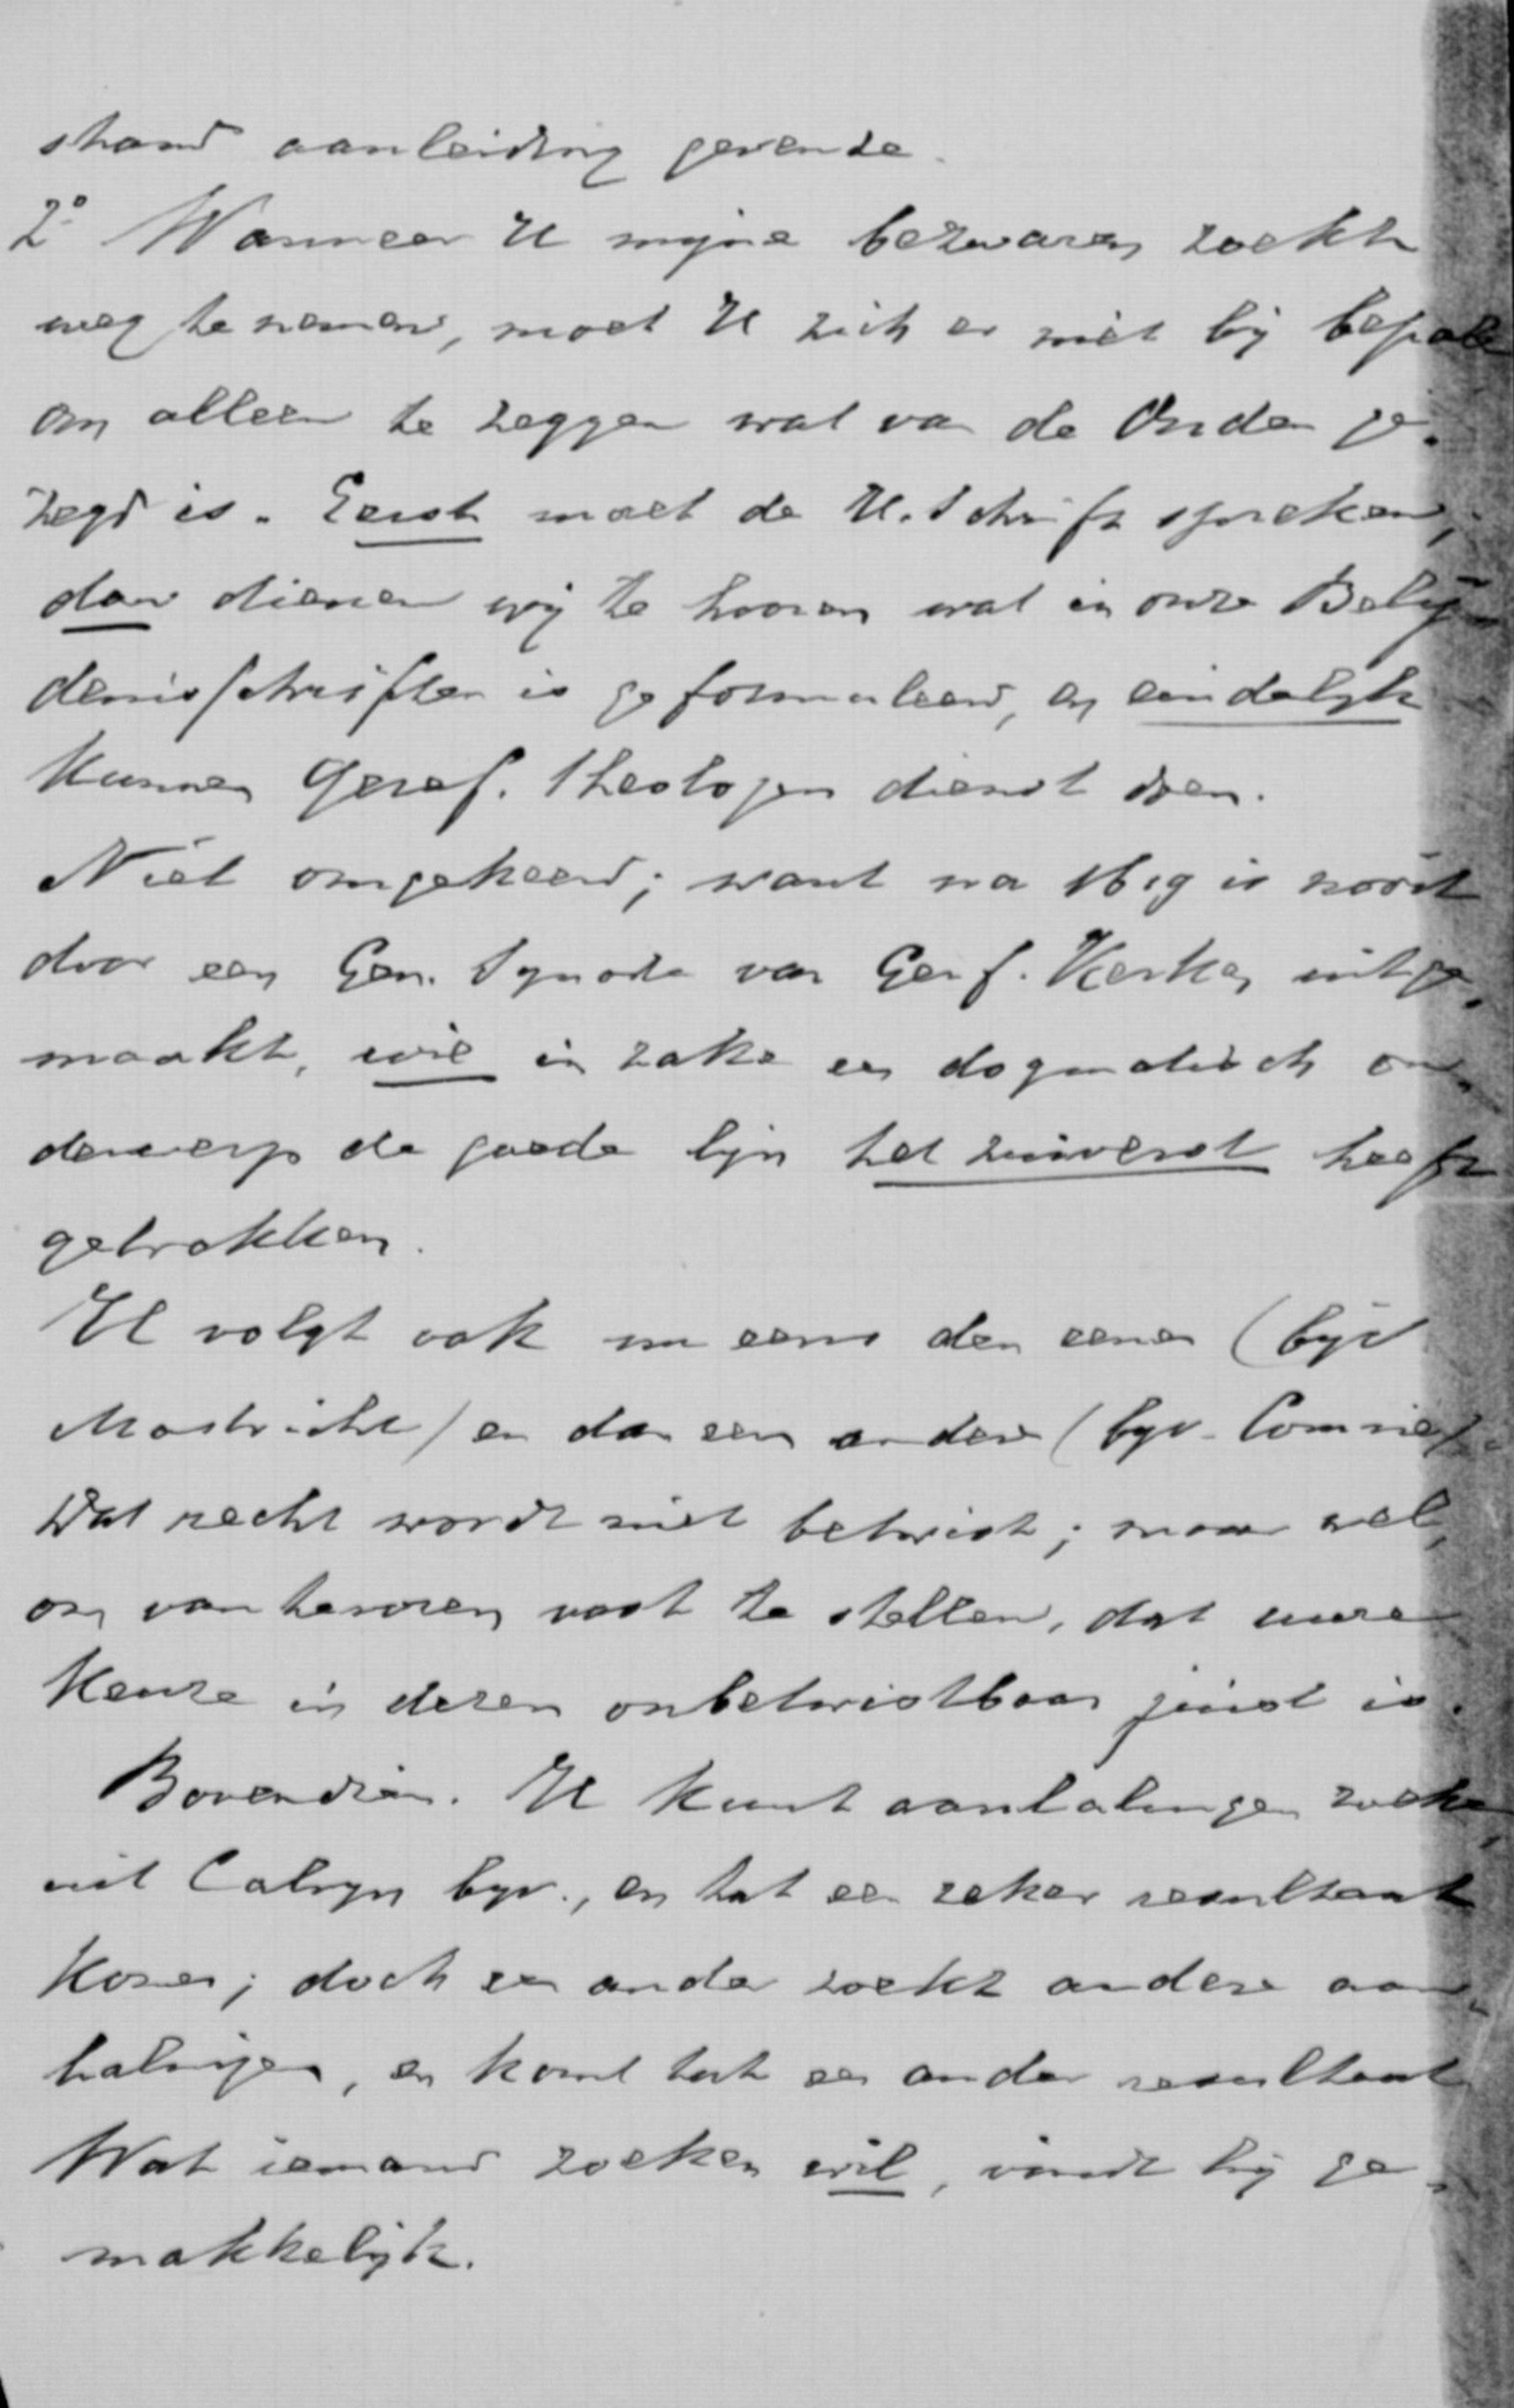 stand aanleiding gevende.
2° Wanneer U mijne bezwaren zoekt
weg te nemen, moet U zich er niet bij bepale
om alleen te zeggen wat van de Ouden ge-
zegd is. Eerst moet de H. Schrift spreken,
dan dienen wij te hooren wat in onze Belij-
denisschriften is geformuleerd, en eindelijk
kunnen Geref. theologen dienst doen.
Niet omgekeerd; want na 1619 is nooit
door een Gen. Synode van Geref. Kerken uitge-
maakt, wie in zake een dogmatisch on-
derwerp de goede lijn het zuiverst heeft
getrokken.
U volgt ook nu eens den eenen (bijv
Mastricht) en dan een ander (bijv. Comrie).
Dat recht wordt niet betwist; maar wel,
om van tevoren vast te stellen, dat uwe
keuze in dezen onbetwistbaar juist is.
Bovendien. U kunt aanhalingen zoeken
uit Calvijn bijv., en tot een zeker resultaat
komen; doch een ander zoekt andere aan-
halingen, en komt tot een ander resultaat
Wat iemand zoeken wil, vindt hij ge-
makkelijk.